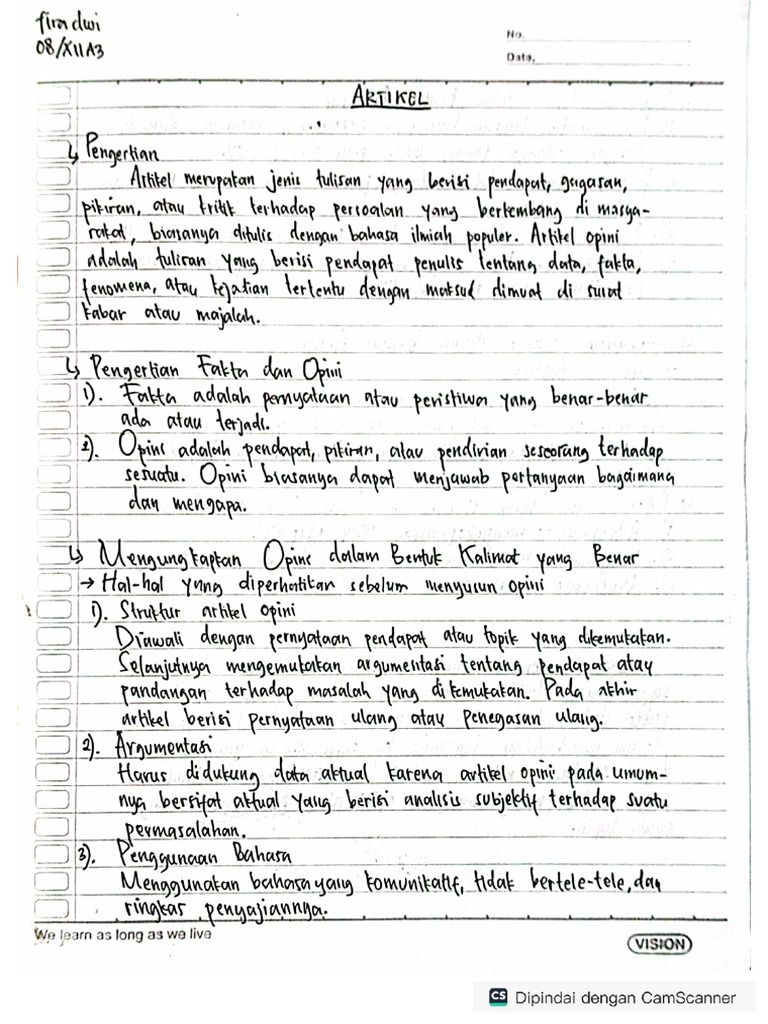 fira dwi
08/XII A3
No.
Date.
ARTIKEL
↳ Pengertian
Artikel merupakan jenis tulisan yang berisi pendapat, gagasan,
pikiran, atau kritik terhadap persoalan yang berkembang di masya-
rakat, biasanya ditulis dengan bahasa ilmiah populer. Artikel opini
adalah tulisan yang berisi pendapat penulis tentang data, fakta,
fenomena, atau kejadian tertentu dengan maksud dimuat di surat
kabar atau majalah.
↳ Pengertian Fakta dan Opini
1). Fakta adalah pernyataan atau peristiwa yang benar-benar
ada atau terjadi.
2). Opini adalah pendapat, pikiran, atau pendirian seseorang terhadap
sesuatu. Opini biasanya dapat menjawab pertanyaan bagaimana
dan mengapa.
↳ Mengungkapkan Opini dalam Bentuk Kalimat yang Benar
→ Hal-hal yang diperhatikan sebelum menyusun opini
1). Struktur artikel opini
Diawali dengan pernyataan pendapat atau topik yang dikemukakan.
Selanjutnya mengemukakan argumentasi tentang pendapat atau
pandangan terhadap masalah yang dikemukakan. Pada akhir
artikel berisi pernyataan ulang atau penegasan ulang.
2). Argumentasi
Harus didukung data aktual karena artikel opini pada umum-
nya bersifat aktual yang berisi analisis subjektif terhadap suatu
permasalahan.
3). Penggunaan Bahasa
Menggunakan bahasa yang komunikatif, tidak bertele-tele, dan
ringkas penyajiannya.
We learn as long as we live
VISION
CS Dipindai dengan CamScanner